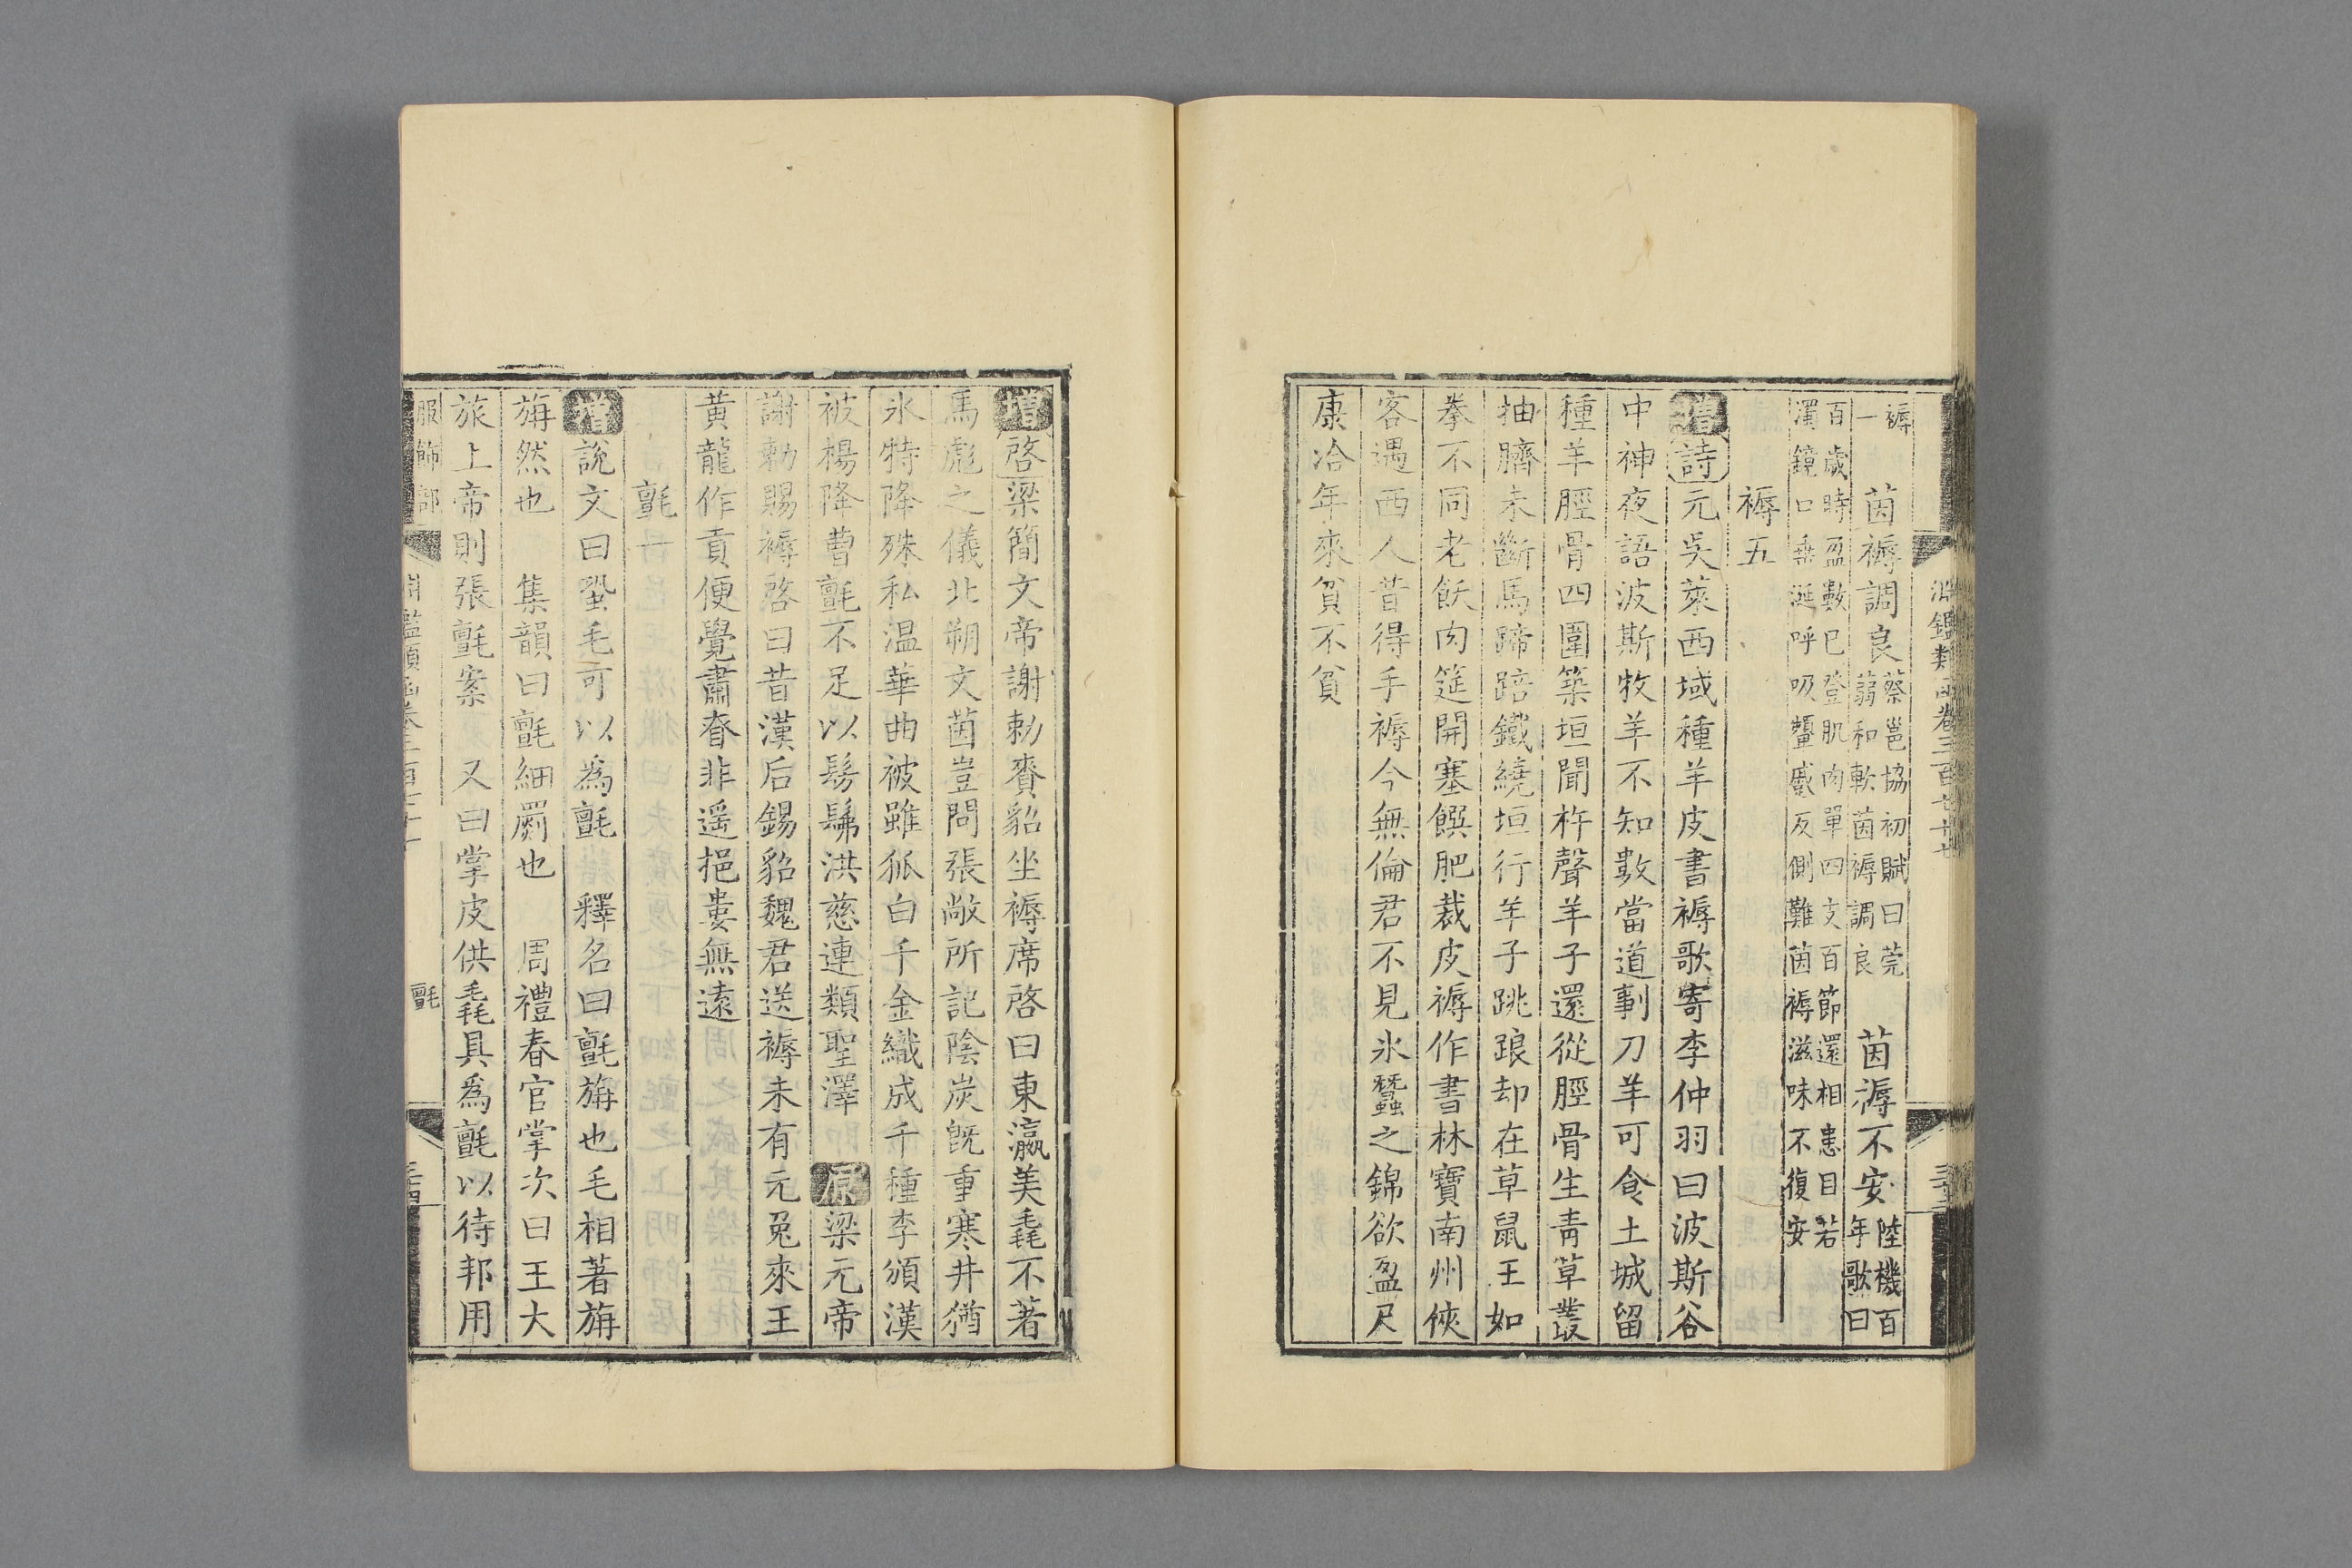 淵鑑類函卷三百七十七
褥一　茵褥調良蔡邕協初賦曰莞蒻和軟茵褥調良　茵溽不安陸機百年歌曰
百歲時盈數已登肌肉單四支百節還相患目若濁鏡口垂涎呼吸顰蹙反側難茵褥滋味不復安
褥五
增詩元吳萊西域種羊皮書褥歌寄李仲羽曰波斯谷
中神夜語波斯牧羊不知數當道剚刀羊可食土城留
種羊脛骨四圍築垣聞杵聲羊子還從脛骨生青草叢
抽臍未斷馬蹄踣鐵繞垣行羊子跳踉却在草鼠王如
拳不同老飫肉筵開塞饌肥裁皮褥作書林寶南州俠
客遇西人昔得手褥今無倫君不見氷蠶之錦欲盈尺
康洽年來貧不貧
增啓梁簡文帝謝勅賚貂坐褥席啓曰東瀛美毳不著
馬彪之儀北朔文茵豈問張敞所記陰炭旣重寒井猶
氷特降殊私温華曲被雖狐白千金織成千種李頒漢
被楊降曹氈不足以髣髴洪慈連類聖澤　原梁元帝
謝勅賜褥啓曰昔漢后錫貂魏君送褥未有元兔來王
黃龍作貢便覺肅脊非遥挹婁無遠
氈一
增說文曰蹂毛可以爲氈　釋名曰氈旃也毛相著旃
旃然也　集韻曰氈細罽也　周禮春官掌次曰王大
旅上帝則張氈案　又曰掌皮供毳具爲氈以待邦用
服飾部　淵鑑類函卷三百七十七　氈